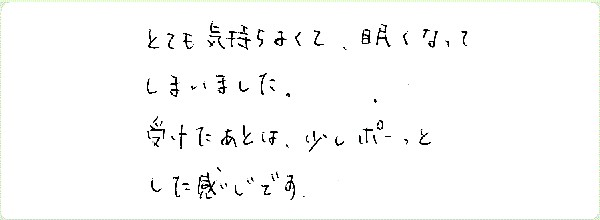 とても気持ちよくて、眠くなって
しまいました。
受けたあとは、少しポーっと
した感じです。